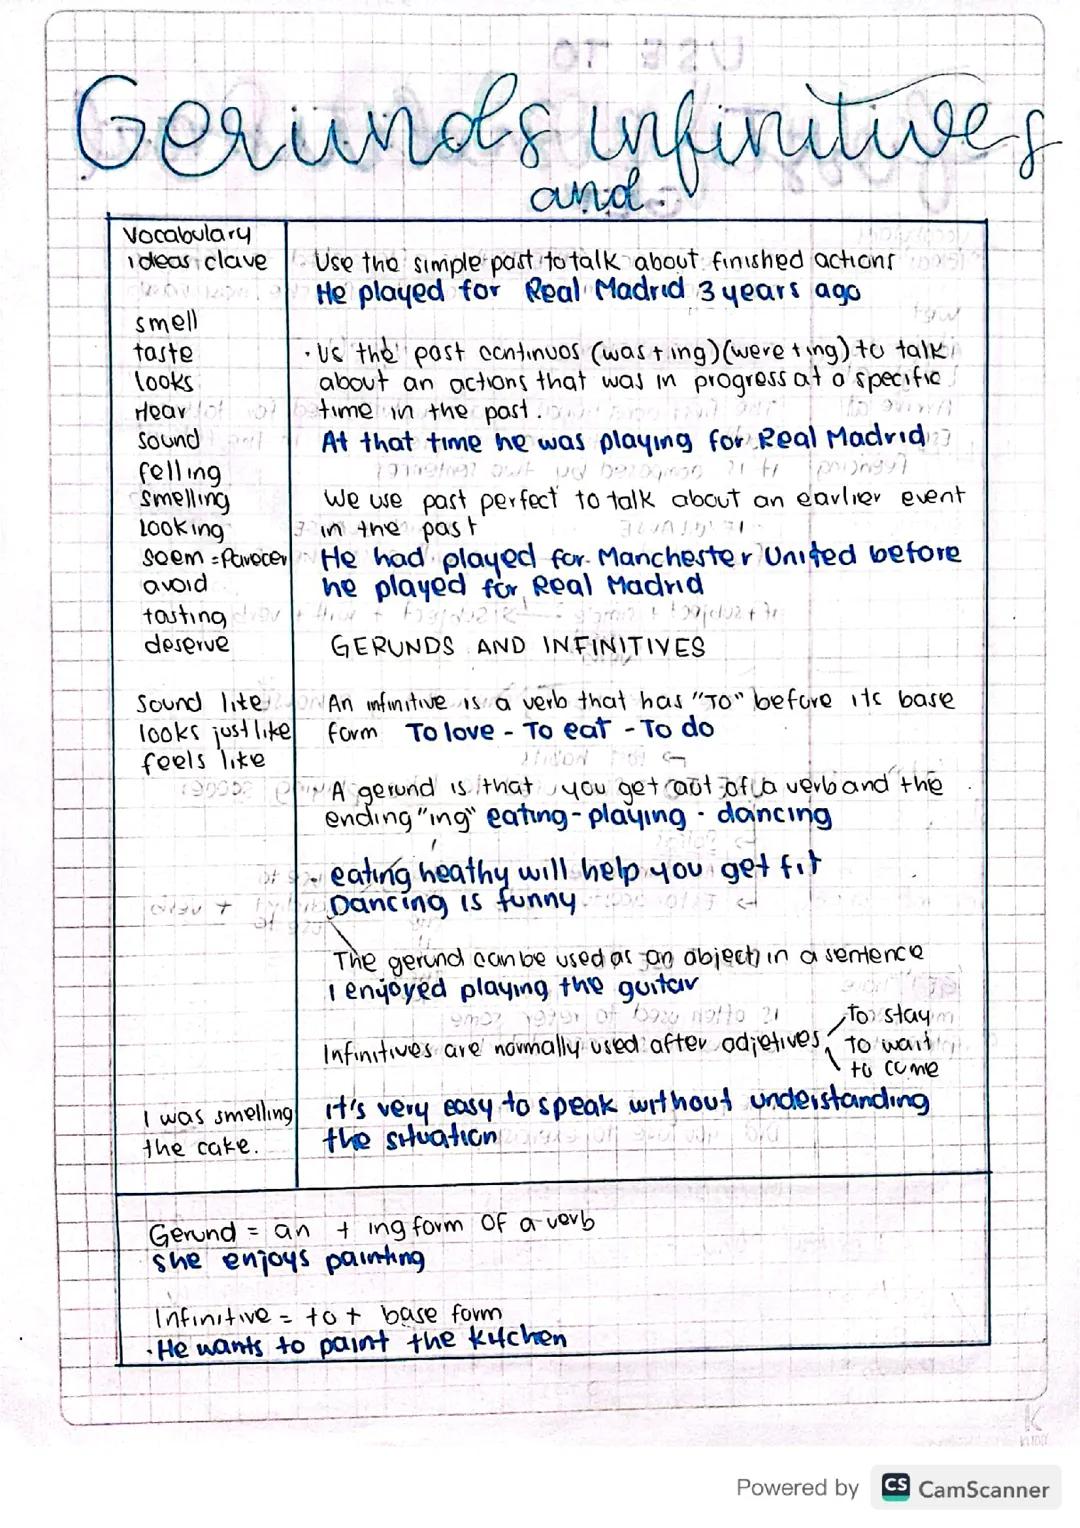 Gerunds infinitives
and
Vocabulary
ideas clave
smell
taste
looks
Hear
sound
felling
smelling
Looking
Seem = Parecer
avoid
tasting
deserve
Sound like
looks just like
feels like
I was smelling
the cake.
Use the simple past to talk about finished actions
He played for Real Madrid 3 years ago
· Us the past continuos (was + ing) (were + ing) to talk
about an actions that was in progress at a specific
time in the past.
At that time he was playing for Real Madrid
We use past perfect to talk about an earlier event
in the past
He had played for Manchester United before
he played for Real Madrid
GERUNDS AND INFINITIVES
An infinitive is a verb that has "TO" before its base
form To love - To eat - To do
A gerund is that you get out of a verb and the
ending "ing" eating - playing - dancing
· eating heathy will help you get fit
Dancing is funny
The gerund can be used as an object in a sentence
I enjoyed playing the guitar
Infinitives are normally used after adjetives
To stay
To wait
to come
it's very easy to speak without understanding
the situation
Gerund = an + ing form of a verb
she enjoys painting
Infinitive = to + base form
· He wants to paint the kitchen
Powered by CS CamScanner